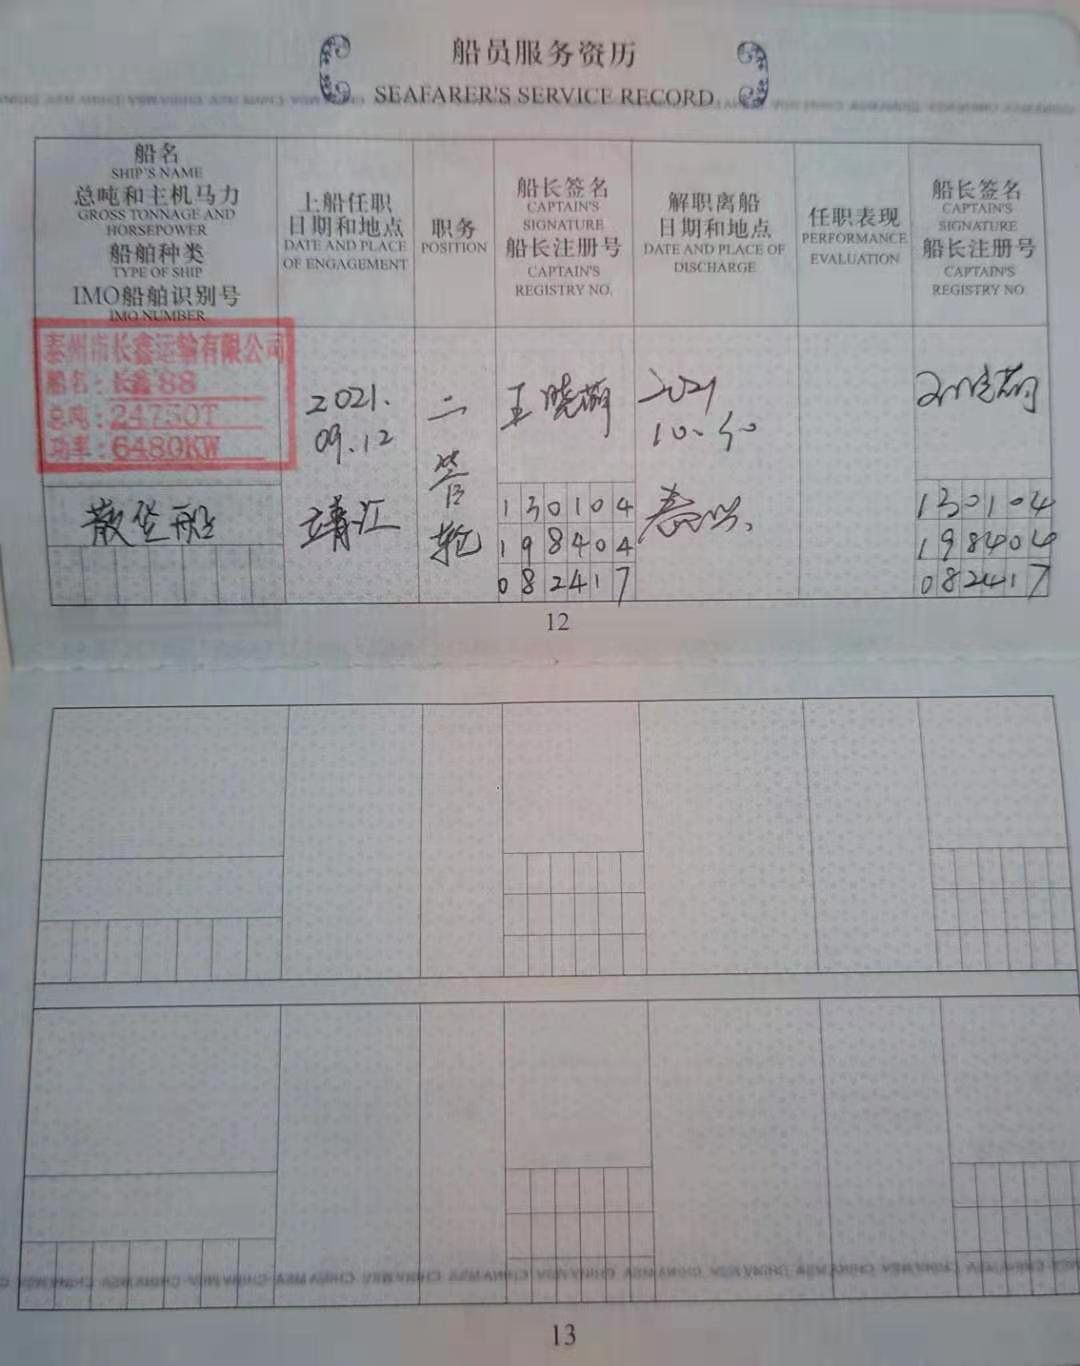 船员服务资历
SEAFARER'S SERVICE RECORD
船名
SHIP'S NAME
总吨和主机马力
GROSS TONNAGE AND
HORSEPOWER
船舶种类
TYPE OF SHIP
IMO船舶识别号
IMO NUMBER
上船任职
日期和地点
DATE AND PLACE
OF ENGAGEMENT
职务
POSITION
船长签名
CAPTAIN'S
SIGNATURE
船长注册号
CAPTAIN'S
REGISTRY NO.
解职离船
日期和地点
DATE AND PLACE OF
DISCHARGE
任职表现
PERFORMANCE
EVALUATION
船长签名
CAPTAIN'S
SIGNATURE
船长注册号
CAPTAIN'S
REGISTRY NO
泰州市长鑫运输有限公司
船名:长鑫88
总吨:24750T
功率:6480KW
散货船
2021.
09.12
靖江
二
管
轮
王晓萌
130104
198404
082417
2021
10.
130104
198404
082417
12
13